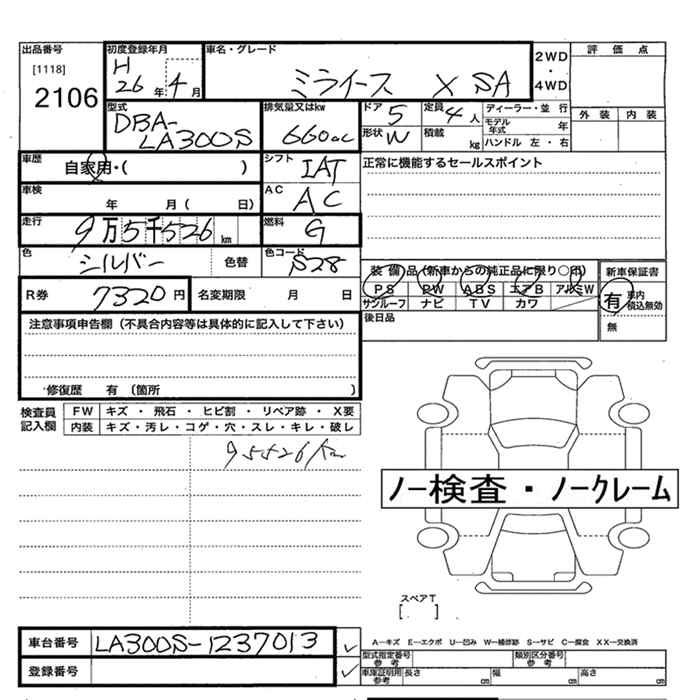 出品番号
[1118]
2106
初度登録年月
H 26 年 4 月
車名・グレード
ミライース X SA
2WD
・
4WD
評価点
外装 内装
型式
DBA-
LA300S
排気量又はkw
660cc
ドア 5
形状 W
定員 4 人
積載 kg
ディーラー・並 行
モデル年式 年
ハンドル 左・右
車歴
自家用・( )
シフト IAT
正常に機能するセールスポイント
車検
年 月 ( 日)
AC AC
走行
9万5千526 km
燃料 G
色
シルバー
色替
色コード S28
装備品 (新車からの純正品に限り○印)
PS PW ABS エアB アルミW
サンルーフ ナビ TV カワ
新車保証書
有 車内積込無効
無
R券 7320 円
名変期限 月 日
後日品
注意事項申告欄 (不具合内容等は具体的に記入して下さい)
修復歴 有 (箇所 )
検査員記入欄
FW キズ ・ 飛石 ・ ヒビ割 ・ リペア跡 ・ X要
内装 キズ・汚レ・コゲ・穴・スレ・キレ・破レ
95526km
ノー検査・ノークレーム
スペアT
[ ]
車台番号 LA300S-1237013
登録番号
A-キズ E-エクボ U-凹み W-補修跡 S-サビ C-腐食 XX-交換済
型式指定番号 参考
類別区分番号 参考
車庫証明用 参考 長さ cm 幅 cm 高さ cm